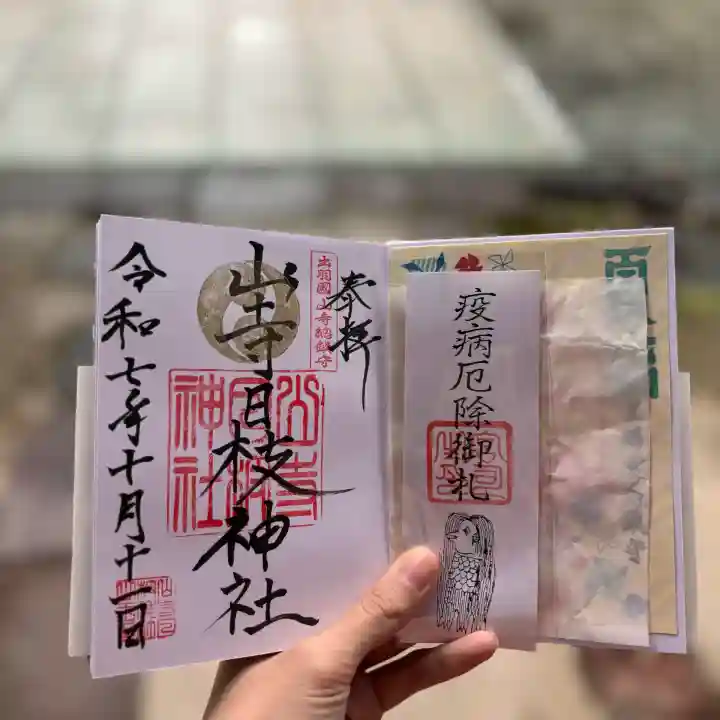 奉拝
出羽國山寺総鎮守
山寺日枝神社
令和七年十月十一日
疫病厄除御札